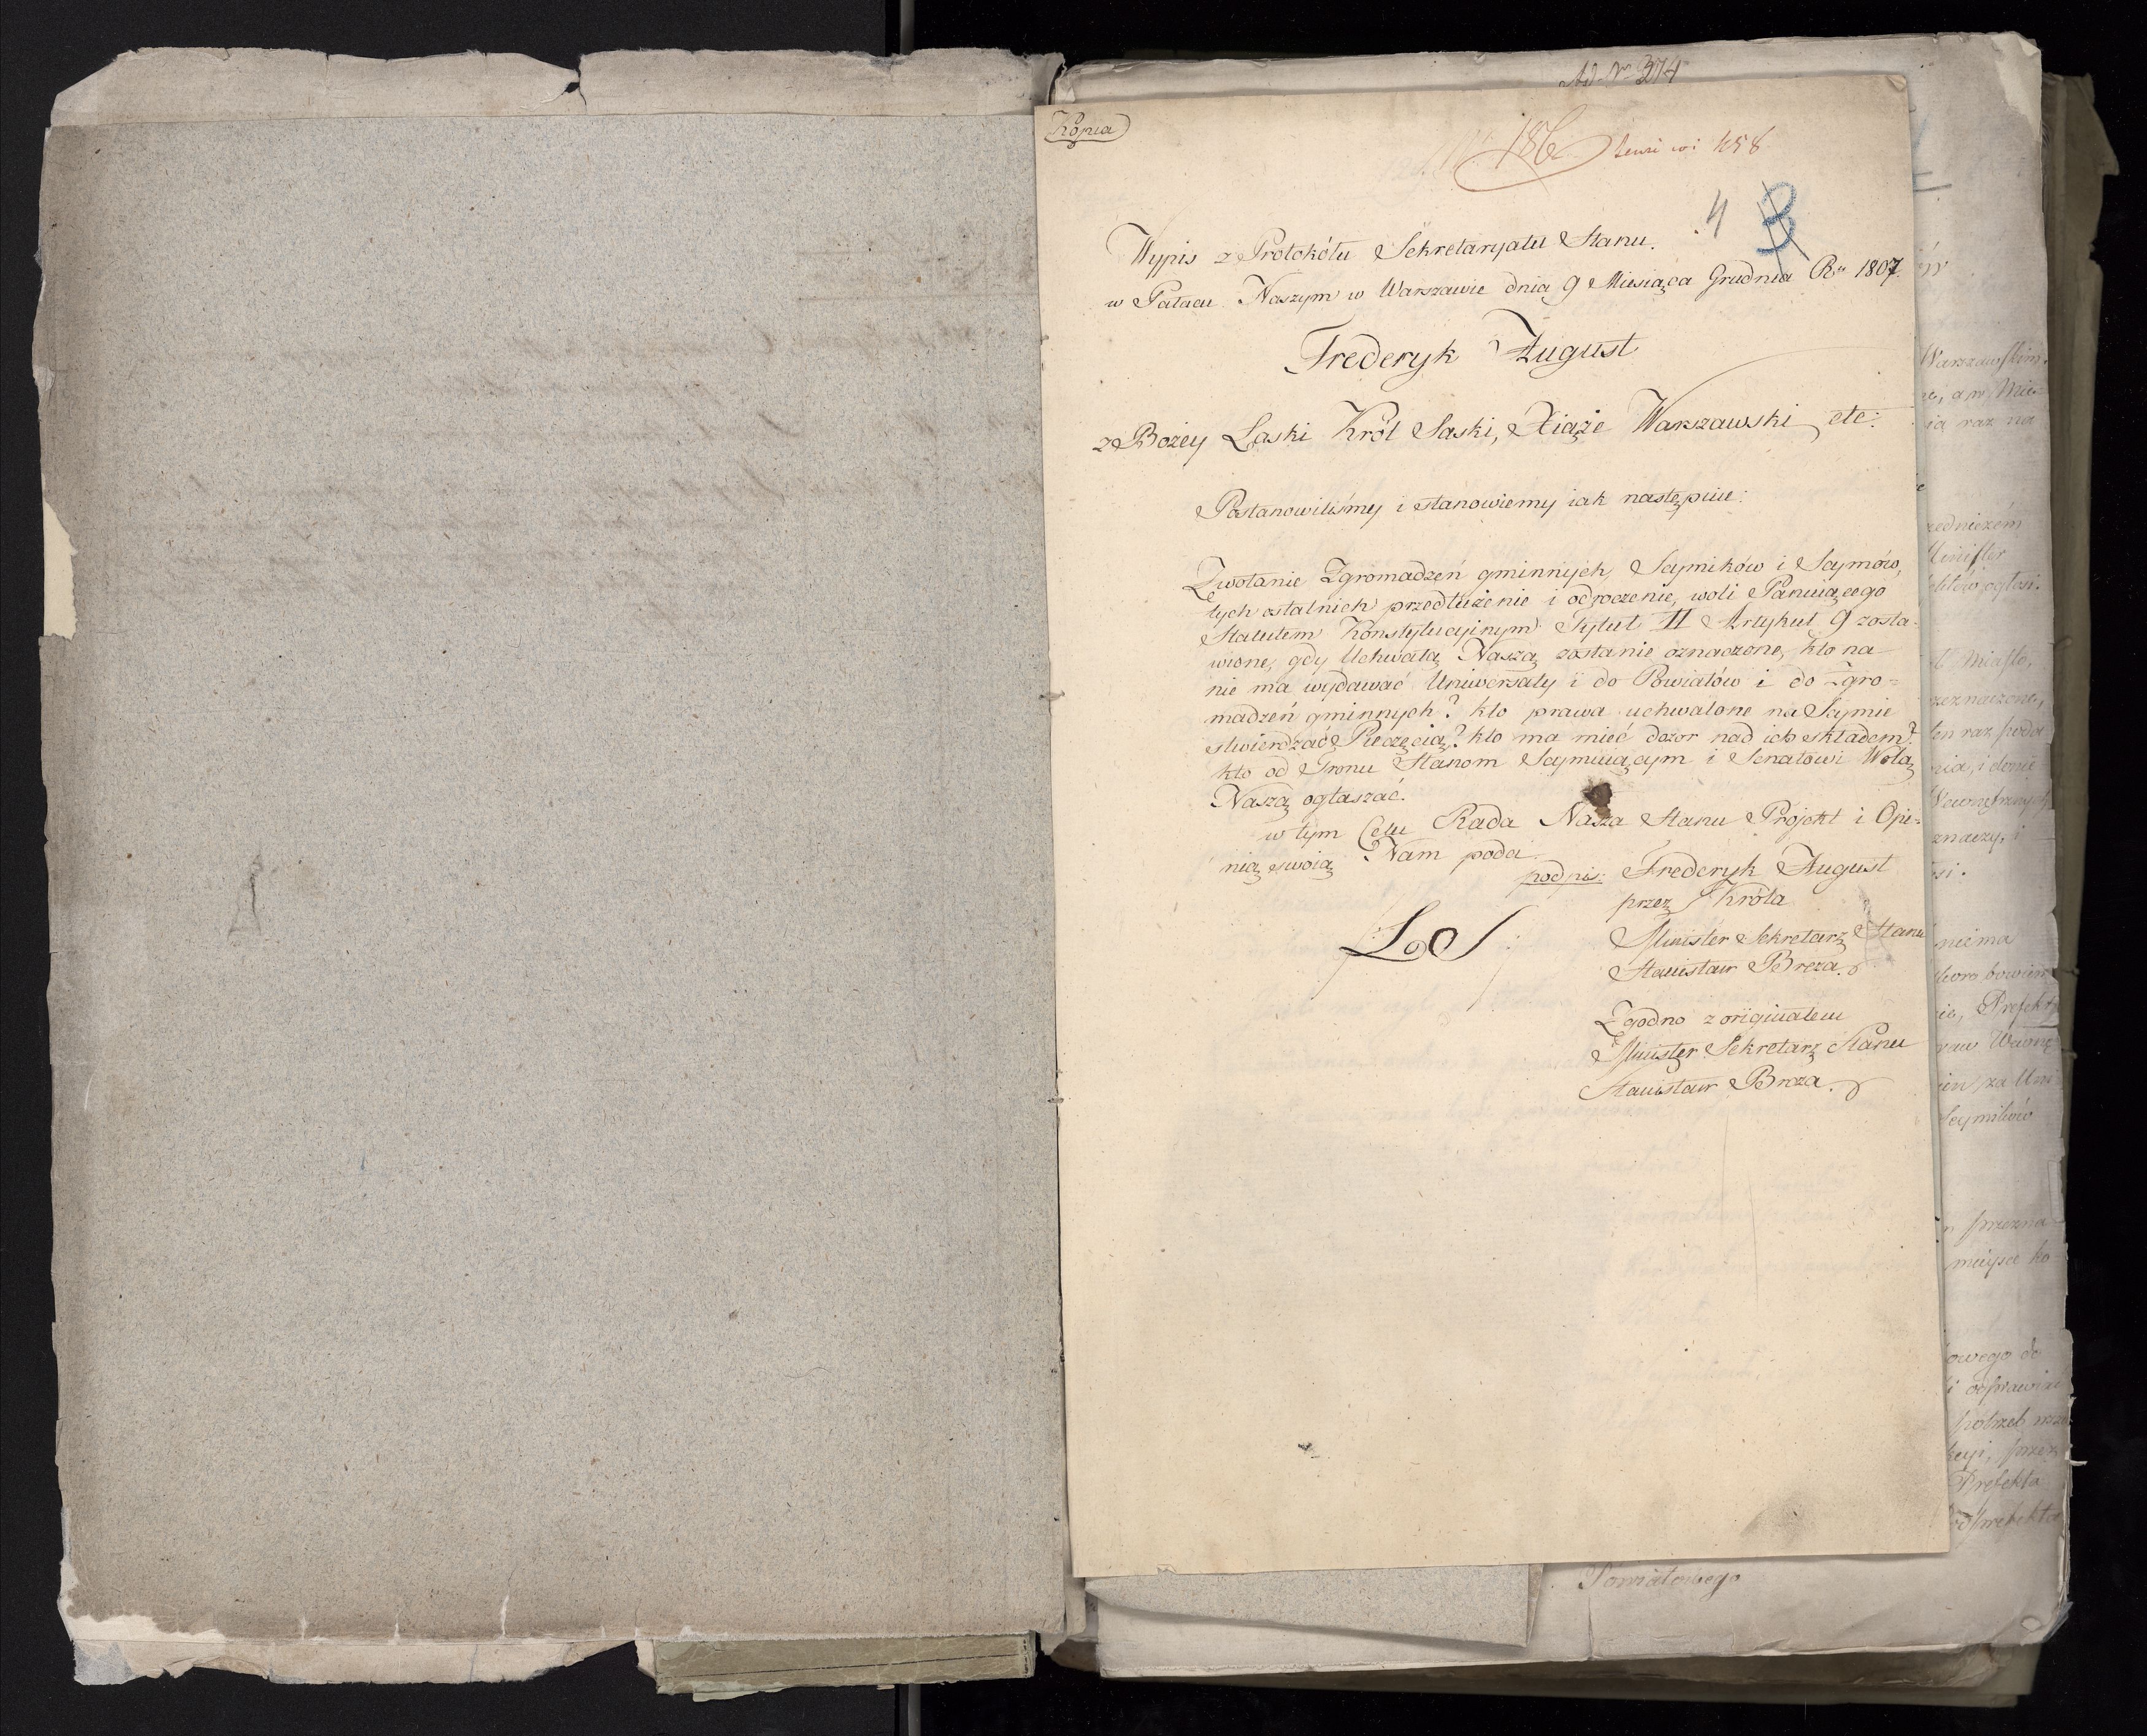 Ad Nr 374
Kopia
186
458
4 3
Wypis z Protokółu Sekretaryatu Stanu.
w Pałacu Naszym w Warszawie dnia 9 Miesiąca Grudnia Ru 1807
Frederyk August
z Bożey Łaski Król Saski, Xiąże Warszawski etc:
Postanowiliśmy i stanowiemy iak następuie:
Zwołanie Zgromadzeń gminnych, Seymików i Seymów,
tych ostatnich przedłużenie i odroczenie, woli Panuiącego
Statutem Konstytucyinym Tytuł II Artykuł 9 zosta-
wione, gdy Uchwałą Naszą zostanie oznaczone, kto na
nie ma wydawać Uniwersały i do Powiatów i do Zgro=
madzeń gminnych? kto prawa uchwalone na Seymie
stwierdzać Pieczęcią? kto ma mieć dozor nad ich składem?
kto od Tronu Stanom Seymuiącym i Senatowi Wolą
Naszą ogłaszać.
w tym Celu Rada Nasza Stanu Projekt i Opi=
nią swoią Nam poda.
podpis: Frederyk August
przez Króla
Minister Sekretarz Stanu
Stanisław Breza.
L S
Zgodno z originałem
Minister Sekretarz Stanu
Stanisław Breza.
Warszawskim.
ia raz na
Minister
Miasto,
znaczy, i
niema
Prefekt
Seymików
miejsce ko
owego do
potrzeb
Prefekta
Podprefekta
Powiatowego